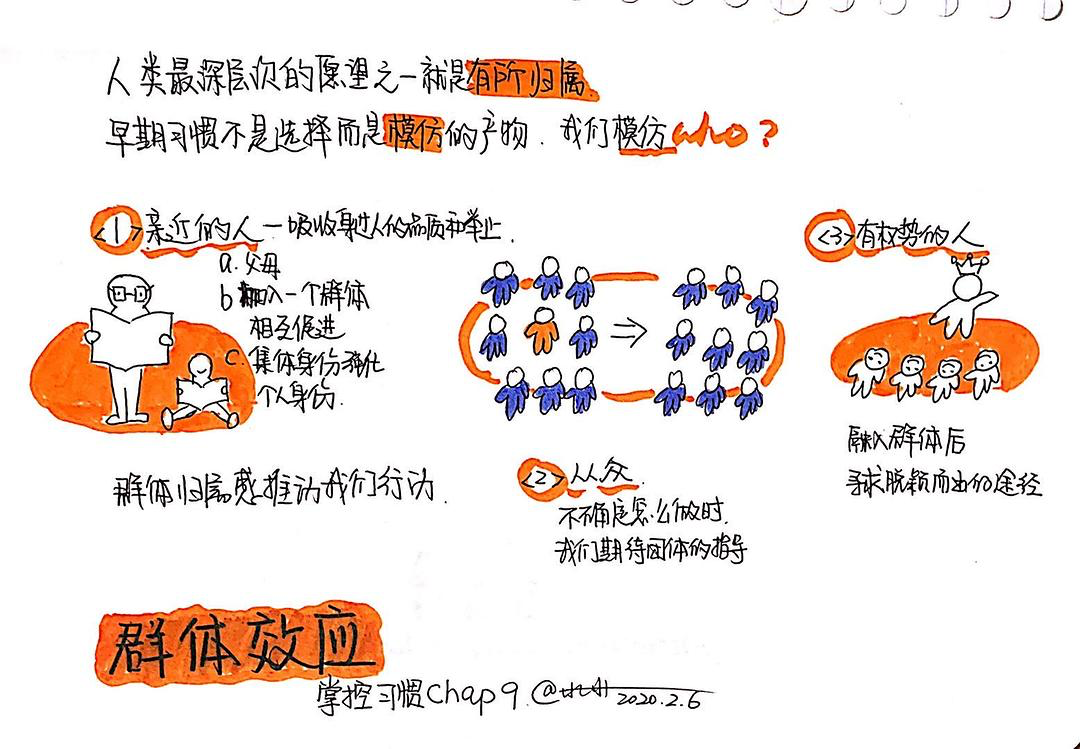 人类最深层次的愿望之一就是有所归属.
早期习惯不是选择而是模仿的产物. 我们模仿who?
<1>亲近的人—吸收身边人的品质和举止.
a.父母
b加入一个群体
相互促进
c 集体身份强化
个人身份.
群体归属感推动我们行动.
<2>从众.
不确定怎么做时.
我们期待团体的指导
<3>有权势的人
融入群体后
寻求脱颖而出的途径
群体效应
掌控习惯Chap9.@
2020.2.6